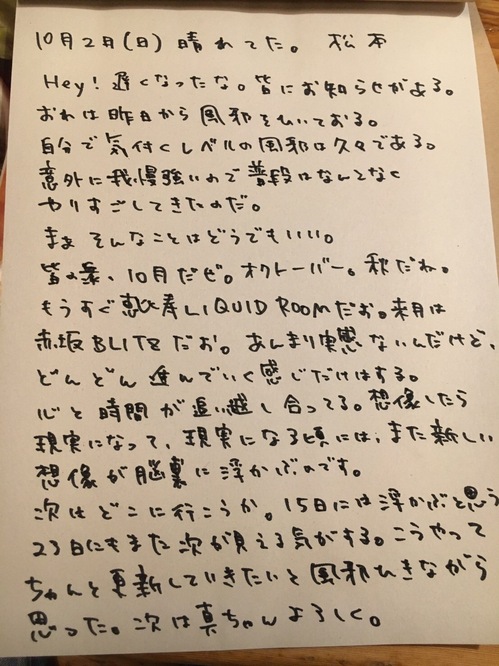 10月2日(日)晴れてた。 松本
Hey! 遅くなったな。皆にお知らせがよる。
おれは昨日から風邪をひいておる。
自分で気付くレベルの風邪は久々である。
意外に我慢強いので普段はなんてなく
やりすごしてきたのだ。
まぁそんなことはどうでもいい。
皆の衆、10月だぜ。オクトーバー。秋だね。
もうすぐ恵比寿LIQUID ROOMだお。来月は
赤坂BLITZだお。あんまり実感ないんだけど、
どんどん進んでいく感じだけはする。
心と時間が追い越し合ってる。想像したら
現実になって、現実になる頃には、また新しい
想像が脳裏に浮かぶのです。
次はどこに行こうか。15日には浮かぶと思う
23日にもまた次が見える気がする。こうやって
ちゃんと更新していきたいと風邪ひきながら
思った。次は真ちゃんよろしく。